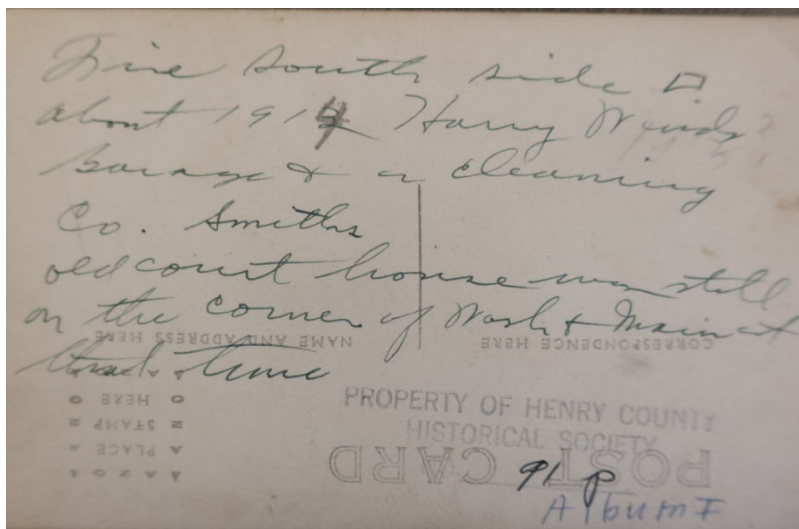 Fire south side □
about 1914 Harry Winds
Garage & a cleaning
Co. Smiths
old court house was still
on the corner of Wash & Main at
that time
NAME AND ADDRESS HERE
CORRESPONDENCE HERE
AZO
PLACE
STAMP
HERE
PROPERTY OF HENRY COUNTY
HISTORICAL SOCIETY
POST CARD
91 P
Album I